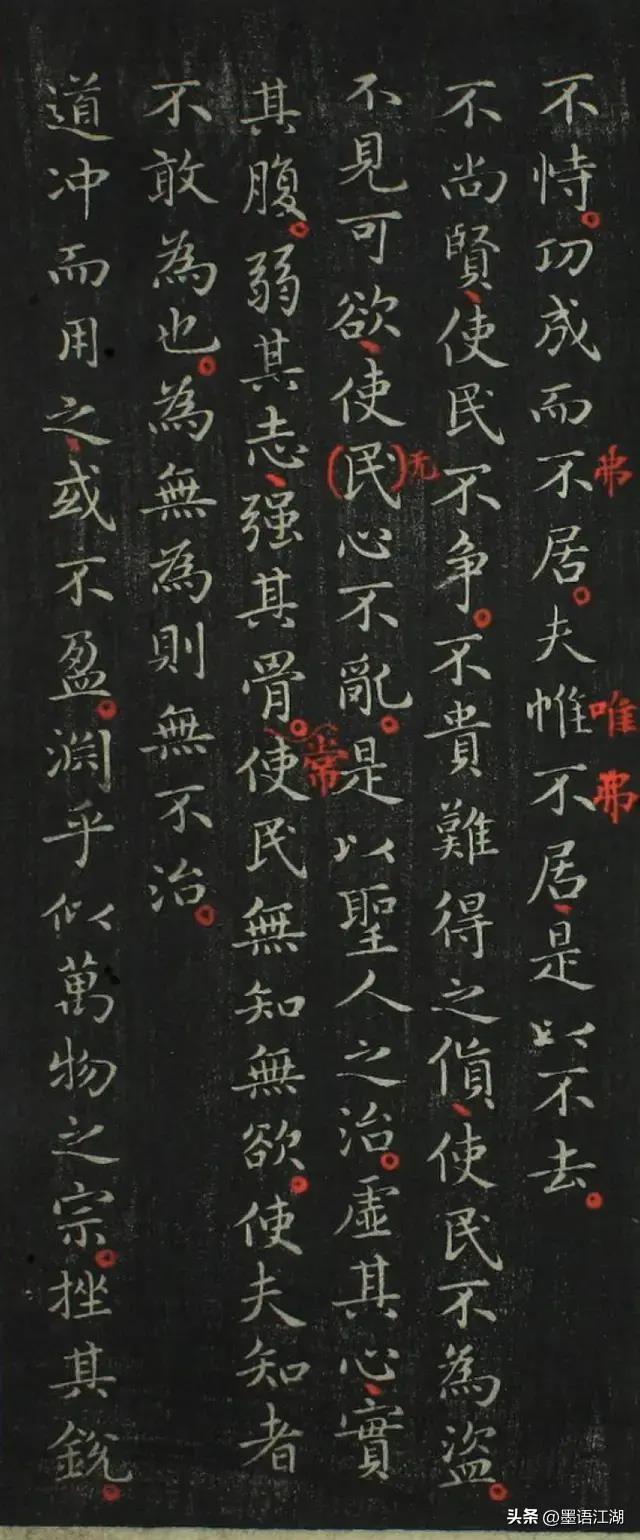 不恃。功成而不居。夫惟不居、是以不去。
弗
唯
弗
不尚賢、使民不争。不貴難得之貨、使民不為盗。
不見可欲、使(民)心不亂。是以聖人之治。虛其心、實
无
其腹。弱其志、强其骨。使民無知無欲。使夫知者
常
不敢為也。為無為則無不治。
道冲而用之、或不盈。渊乎似萬物之宗。挫其銳。
头条 @墨语江湖